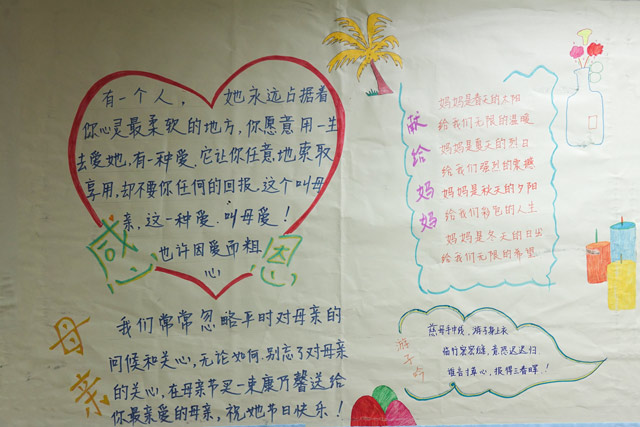 有一个人， 她永远占据着
你心灵最柔软的地方,你愿意用一生
去爱她,有一种爱.它让你任意地索取
享用,却不要你任何的回报.这个叫母
亲,这一种爱.叫母爱！
也许因爱而粗
心
感恩
母亲
我们常常忽略平时对母亲的
问候和关心,无论如何.别忘了对母亲
的关心,在母亲节买一束康乃馨送给
你最亲爱的母亲,祝她节日快乐！
献给妈妈
妈妈是春天的太阳
给我们无限的温暖
妈妈是夏天的烈日
给我们强烈的震撼
妈妈是秋天的夕阳
给我们彩色的人生
妈妈是冬天的日出
给我们无限的希望
游子吟
慈母手中线,游子身上衣
临行密密缝,意恐迟迟归
谁言寸草心,报得三春晖！